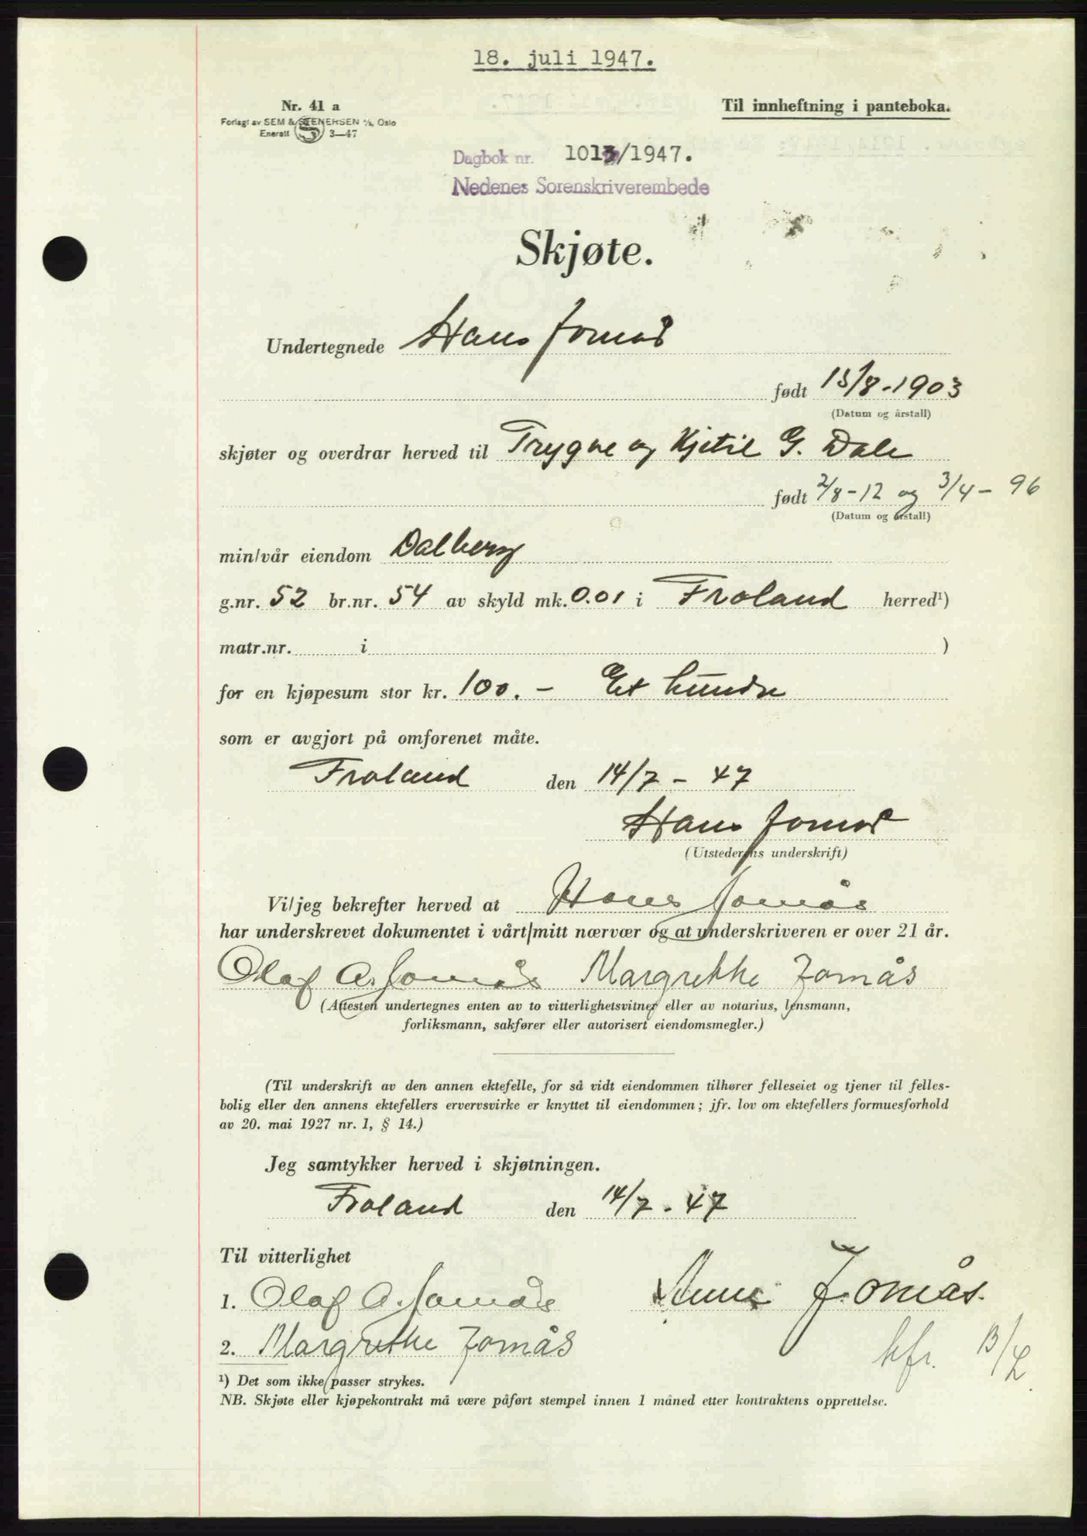 18. juli 1947.
Nr. 41 a
Til innheftning i panteboka.
Forlagt av SEM & STENERSEN A/S, Oslo
Enerett S 3—47
Dagbok nr. 1013/1947.
Nedenes Sorenskriverembede
Skjøte.
Undertegnede Hans Jomås
født 13/8-1903
(Datum og årstall)
skjøter og overdrar herved til Trygve og Kjetil G. Dale
født 2/8-12 og 3/4-96
(Datum og årstall)
min/vår eiendom Dalberg
g.nr. 52 br.nr. 54 av skyld mk. 0.01 i Froland herred¹)
matr.nr. i )
for en kjøpesum stor kr. 100.- Et hundre
som er avgjort på omforenet måte.
Froland den 14/7 - 47
Hans Jomås
(Utstederens underskrift)
Vi/jeg bekrefter herved at Hans Jomås
har underskrevet dokumentet i vårt/mitt nærvær og at underskriveren er over 21 år.
Olaf A. Jomås Margrethe Jomås
(Attesten undertegnes enten av to vitterlighetsvitner eller av notarius, lensmann,
forliksmann, sakfører eller autorisert eiendomsmegler.)
(Til underskrift av den annen ektefelle, for så vidt eiendommen tilhører felleseiet og tjener til felles-
bolig eller den annens ektefellers ervervsvirke er knyttet til eiendommen; jfr. lov om ektefellers formuesforhold
av 20. mai 1927 nr. 1, § 14.)
Jeg samtykker herved i skjøtningen.
Froland den 14/7 - 47
Til vitterlighet
1. Olaf A. Jomås Anne Jomås.
2. Margrethe Jomås
¹) Det som ikke passer strykes.
NB. Skjøte eller kjøpekontrakt må være påført stempel innen 1 måned etter kontraktens opprettelse.